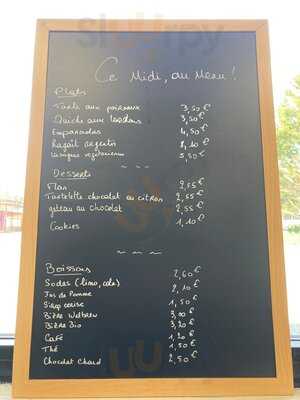 Sluurpy
Ce Midi, au Menu !
Plats
Tarte aux poireaux 3,50 €
Quiche aux lardons 3,50 €
Empanadas 4,50 €
Ragoût 8,10 €
lasagnes végétariennes 5,50 €
Desserts
Flan 2,55 €
Tartelette chocolat au citron 2,55 €
gâteau au chocolat 2,55 €
Cookies 1,10 €
Boissons
Sodas (limo, coca) 2,60 €
Jus de Pomme 2,10 €
Sirop cerise 1,50 €
Bière 3,00 €
Bière Bio 3,20 €
Café 1,20 €
Thé 1,50 €
Chocolat Chaud 2,50 €